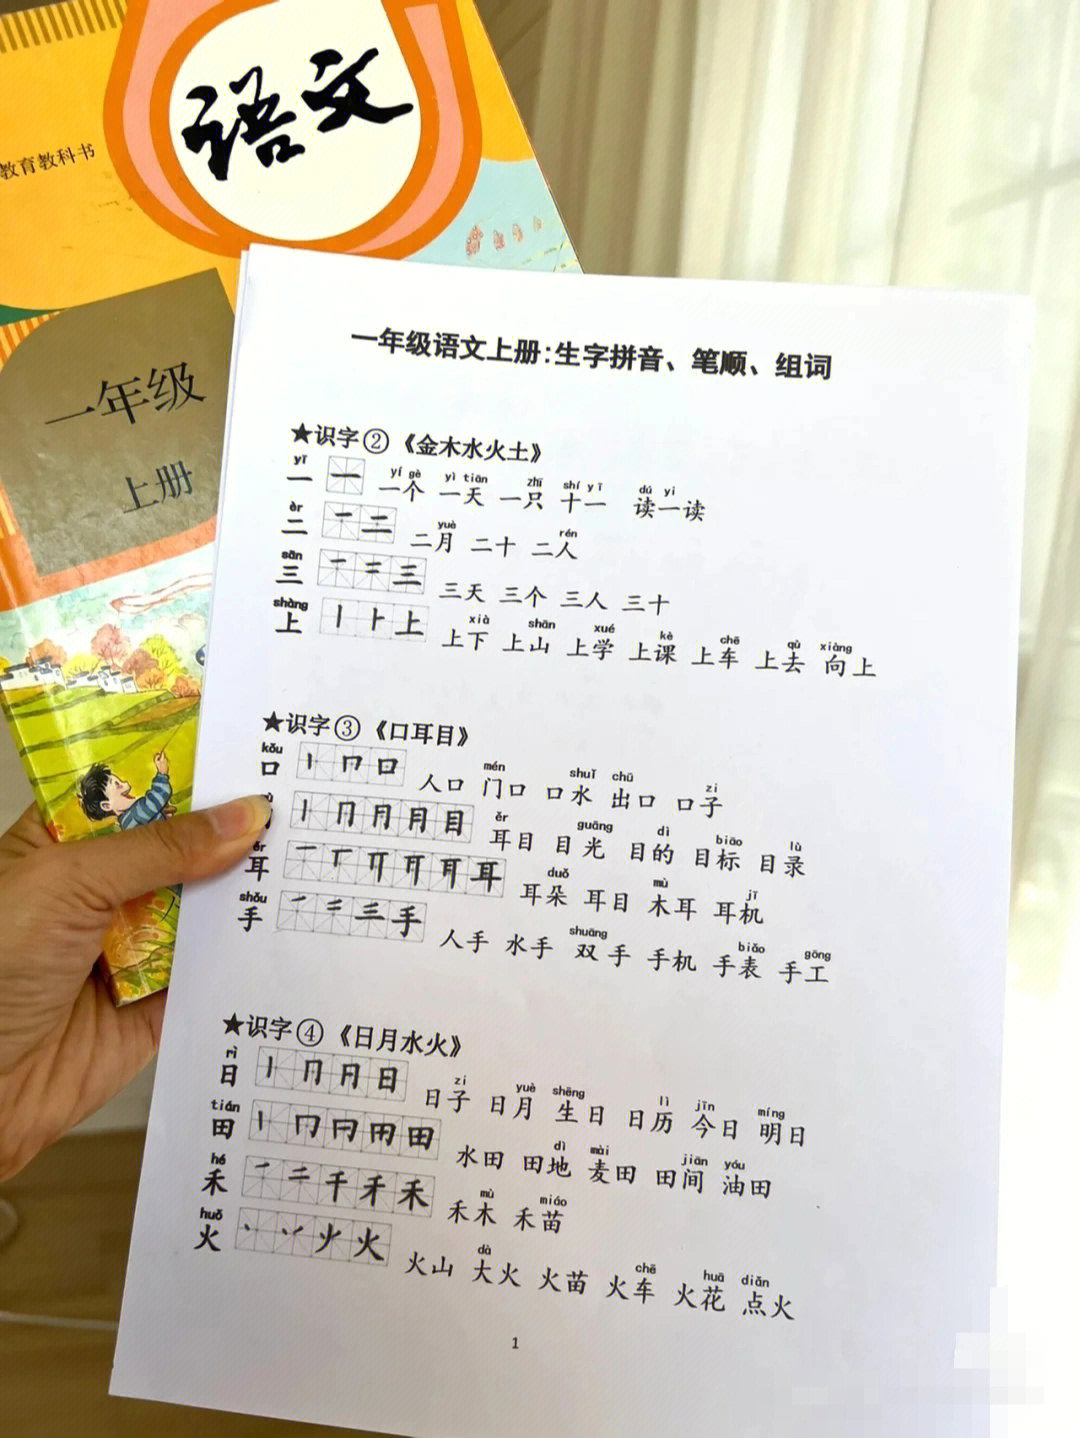 语文
教育教科书
一年级
上册
一年级语文上册:生字拼音、笔顺、组词
★识字②《金木水火土》
yī yí gè yì tiān zhī shí yī dú yi
一 一 一个 一天 一只 十一 读一读
èr yuè rén
二 二 二月 二十 二人
sān
三 三 三天 三个 三人 三十
shàng xià shān xué kè chē qù xiàng
上 上 上下 上山 上学 上课 上车 上去 向上
★识字③《口耳目》
kǒu mén shuǐ chū zi
口 口 人口 门口 口水 出口 口子
ěr guāng dì biāo lù
目 耳目 目光 目的 目标 目录
ěr duǒ mù jī
耳 耳 耳朵 耳目 木耳 耳机
shǒu shuāng biǎo gōng
手 手 人手 水手 双手 手机 手表 手工
★识字④《日月水火》
rì zi yuè shēng lì jīn míng
日 日 日子 日月 生日 日历 今日 明日
tián dì mài jiān yóu
田 田 水田 田地 麦田 田间 油田
hé mù miáo
禾 禾 禾木 禾苗
huǒ dà chē huā diǎn
火 火 火山 大火 火苗 火车 火花 点火
1